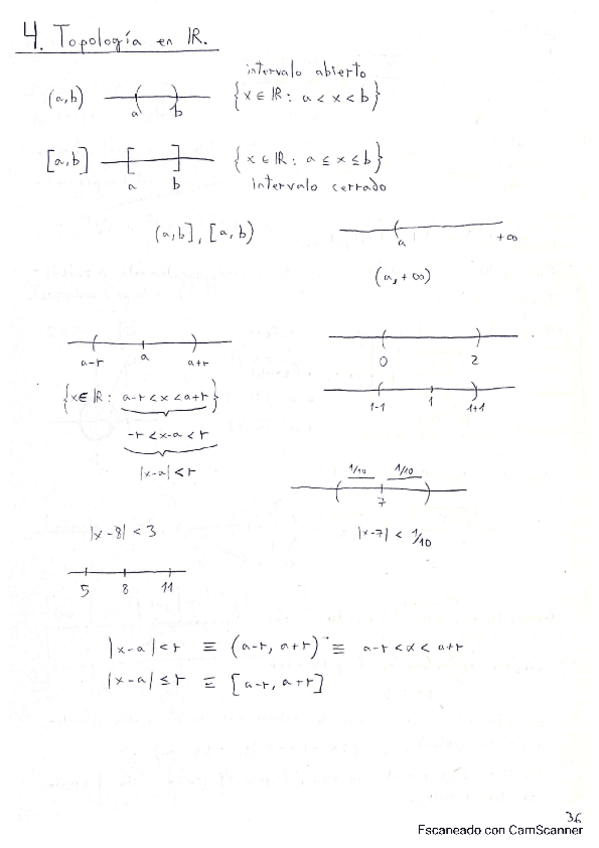 4. Topología en ℝ.
intervalo abierto
(a,b) a b {x ∈ ℝ : a < x < b}
[a,b] a b {x ∈ ℝ : a ≤ x ≤ b}
intervalo cerrado
(a,b], [a,b) a +∞
(a, +∞)
a-r a a+r 0 2
{x ∈ ℝ : a-r < x < a+r} 1-1 1 1+1
-r < x-a < r
|x-a| < r
1/10 1/10
7
|x-8| < 3 |x-7| < 1/10
5 8 11
|x-a| < r ≡ (a-r, a+r) ≡ a-r < x < a+r
|x-a| ≤ r ≡ [a-r, a+r]
36
Escaneado con CamScanner